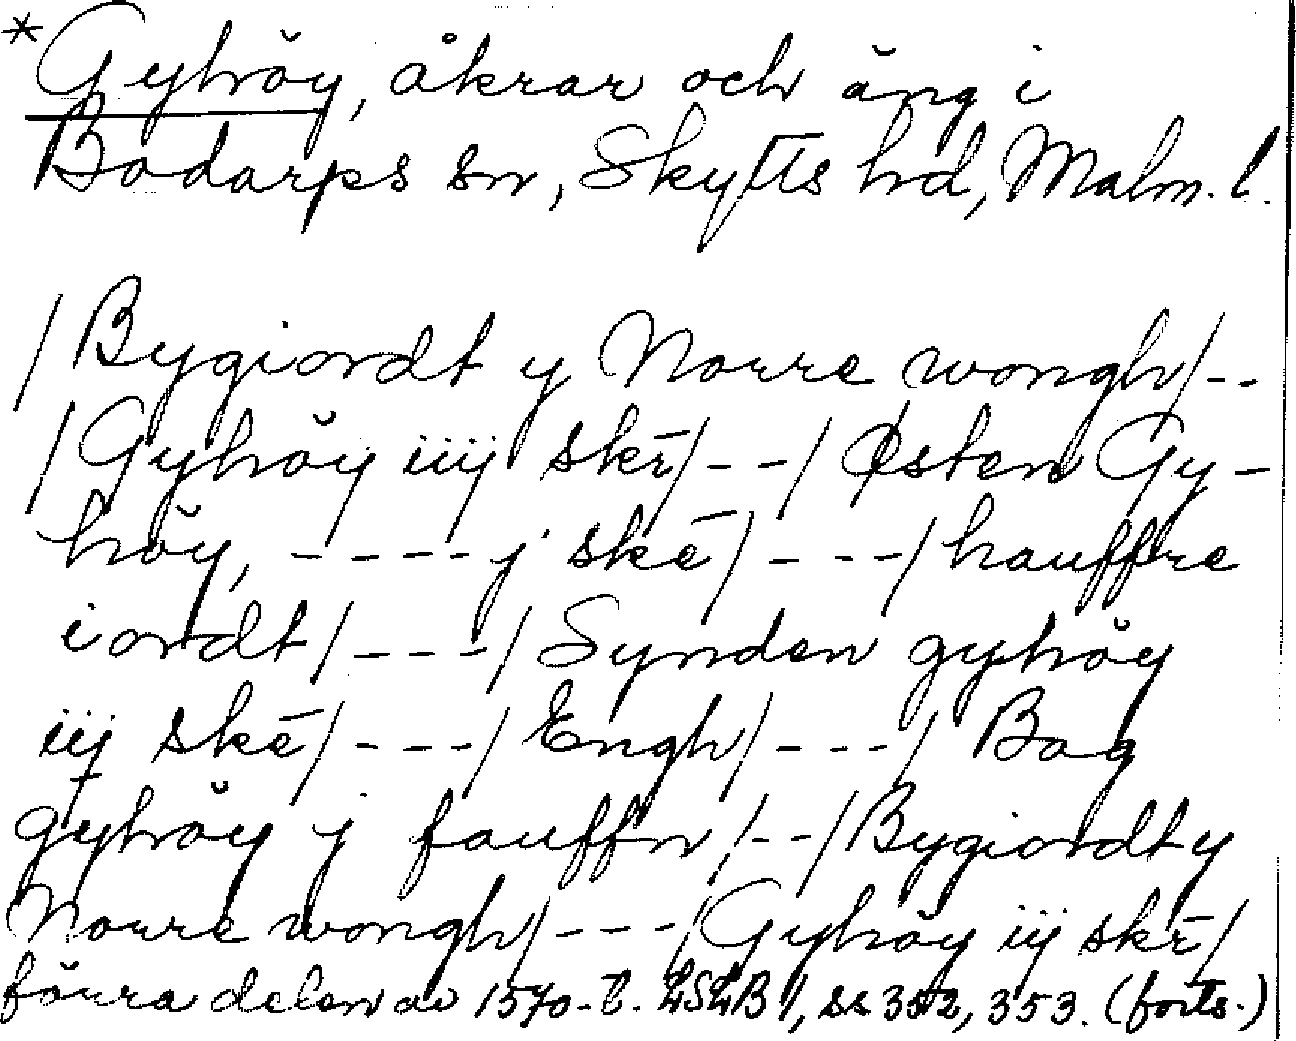 *Gyhöy, åkrar och äng i
Bodarps sn, Skytts hd, Malm. l.
/Bygiordt y Norre wongh/--
/Gyhöy iiij skr̄/--/Østen Gy-
höy, ---- j skē/---/hauffre
iordt/---/Synden gyhöy
iij skē/---/Engh/---/ Bag
gyhöy j fauffn/--/Bygiordt y
Norre wongh/---/Gyhöy iij skr̄/
förra delen av 1570-t. LSLB 1, ss 352, 353. (forts.)